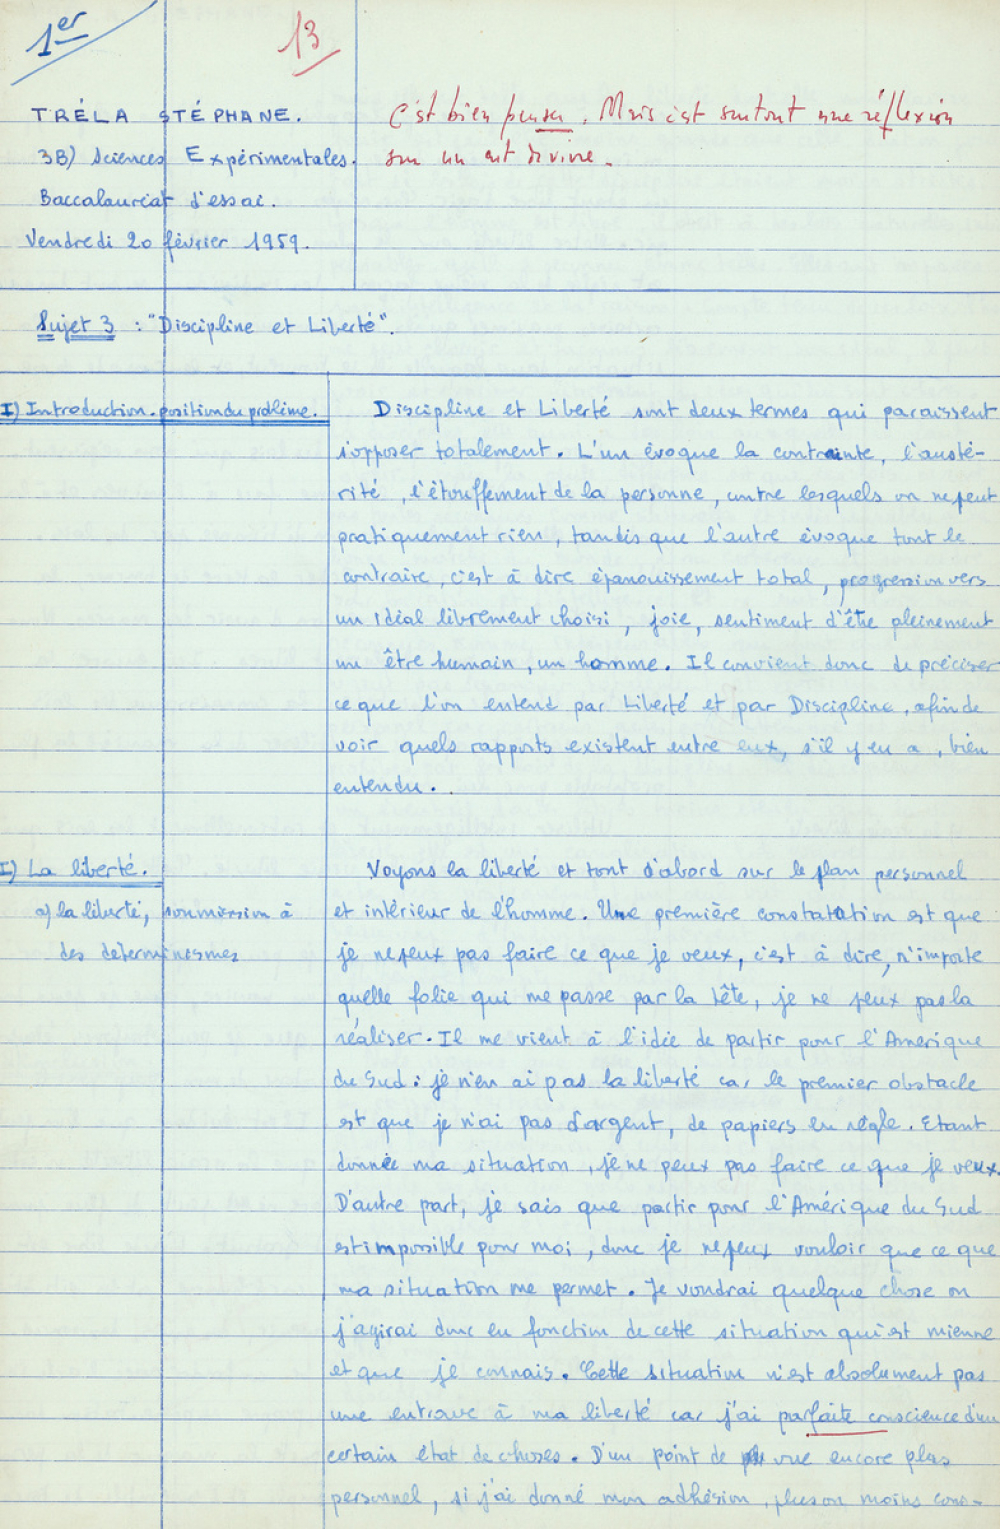 1er
13
TRÉLA STÉPHANE.
3B) Sciences Expérimentales.
Baccalauréat d'essai.
Vendredi 20 février 1959.
C'est bien pensé. Mais c'est surtout une réflexion
sur un art de vivre.
Sujet 3 : "Discipline et Liberté".
I) Introduction. position du problème.
Discipline et Liberté sont deux termes qui paraissent
s'opposer totalement. L'un évoque la contrainte, l'austé-
rité, l'étouffement de la personne, contre lesquels on ne peut
pratiquement rien, tandis que l'autre évoque tout le
contraire, c'est à dire épanouissement total, progression vers
un idéal librement choisi, joie, sentiment d'être pleinement
un être humain, un homme. Il convient donc de préciser
ce que l'on entend par Liberté et par Discipline, afin de
voir quels rapports existent entre eux, s'il y en a, bien
entendu.
I) La liberté.
a) la liberté, soumission à
des determinismes
Voyons la liberté et tout d'abord sur le plan personnel
et intérieur de l'homme. Une première constatation est que
je ne peux pas faire ce que je veux, c'est à dire, n'importe
quelle folie qui me passe par la tête, je ne peux pas la
réaliser. Il me vient à l'idée de partir pour l'Amérique
du Sud : je n'en ai pas la liberté car le premier obstacle
est que je n'ai pas d'argent, de papiers en règle. Etant
donnée ma situation, je ne peux pas faire ce que je veux.
D'autre part, je sais que partir pour l'Amérique du Sud
est impossible pour moi, donc je ne peux vouloir que ce que
ma situation me permet. Je voudrai quelque chose ou
j'agirai donc en fonction de cette situation qui est mienne
et que je connais. Cette situation n'est absolument pas
une entrave à ma liberté car j'ai parfaite conscience d'un
certain état de choses. D'un point de vue encore plus
personnel, si j'ai donné mon adhésion, plus ou moins cons-